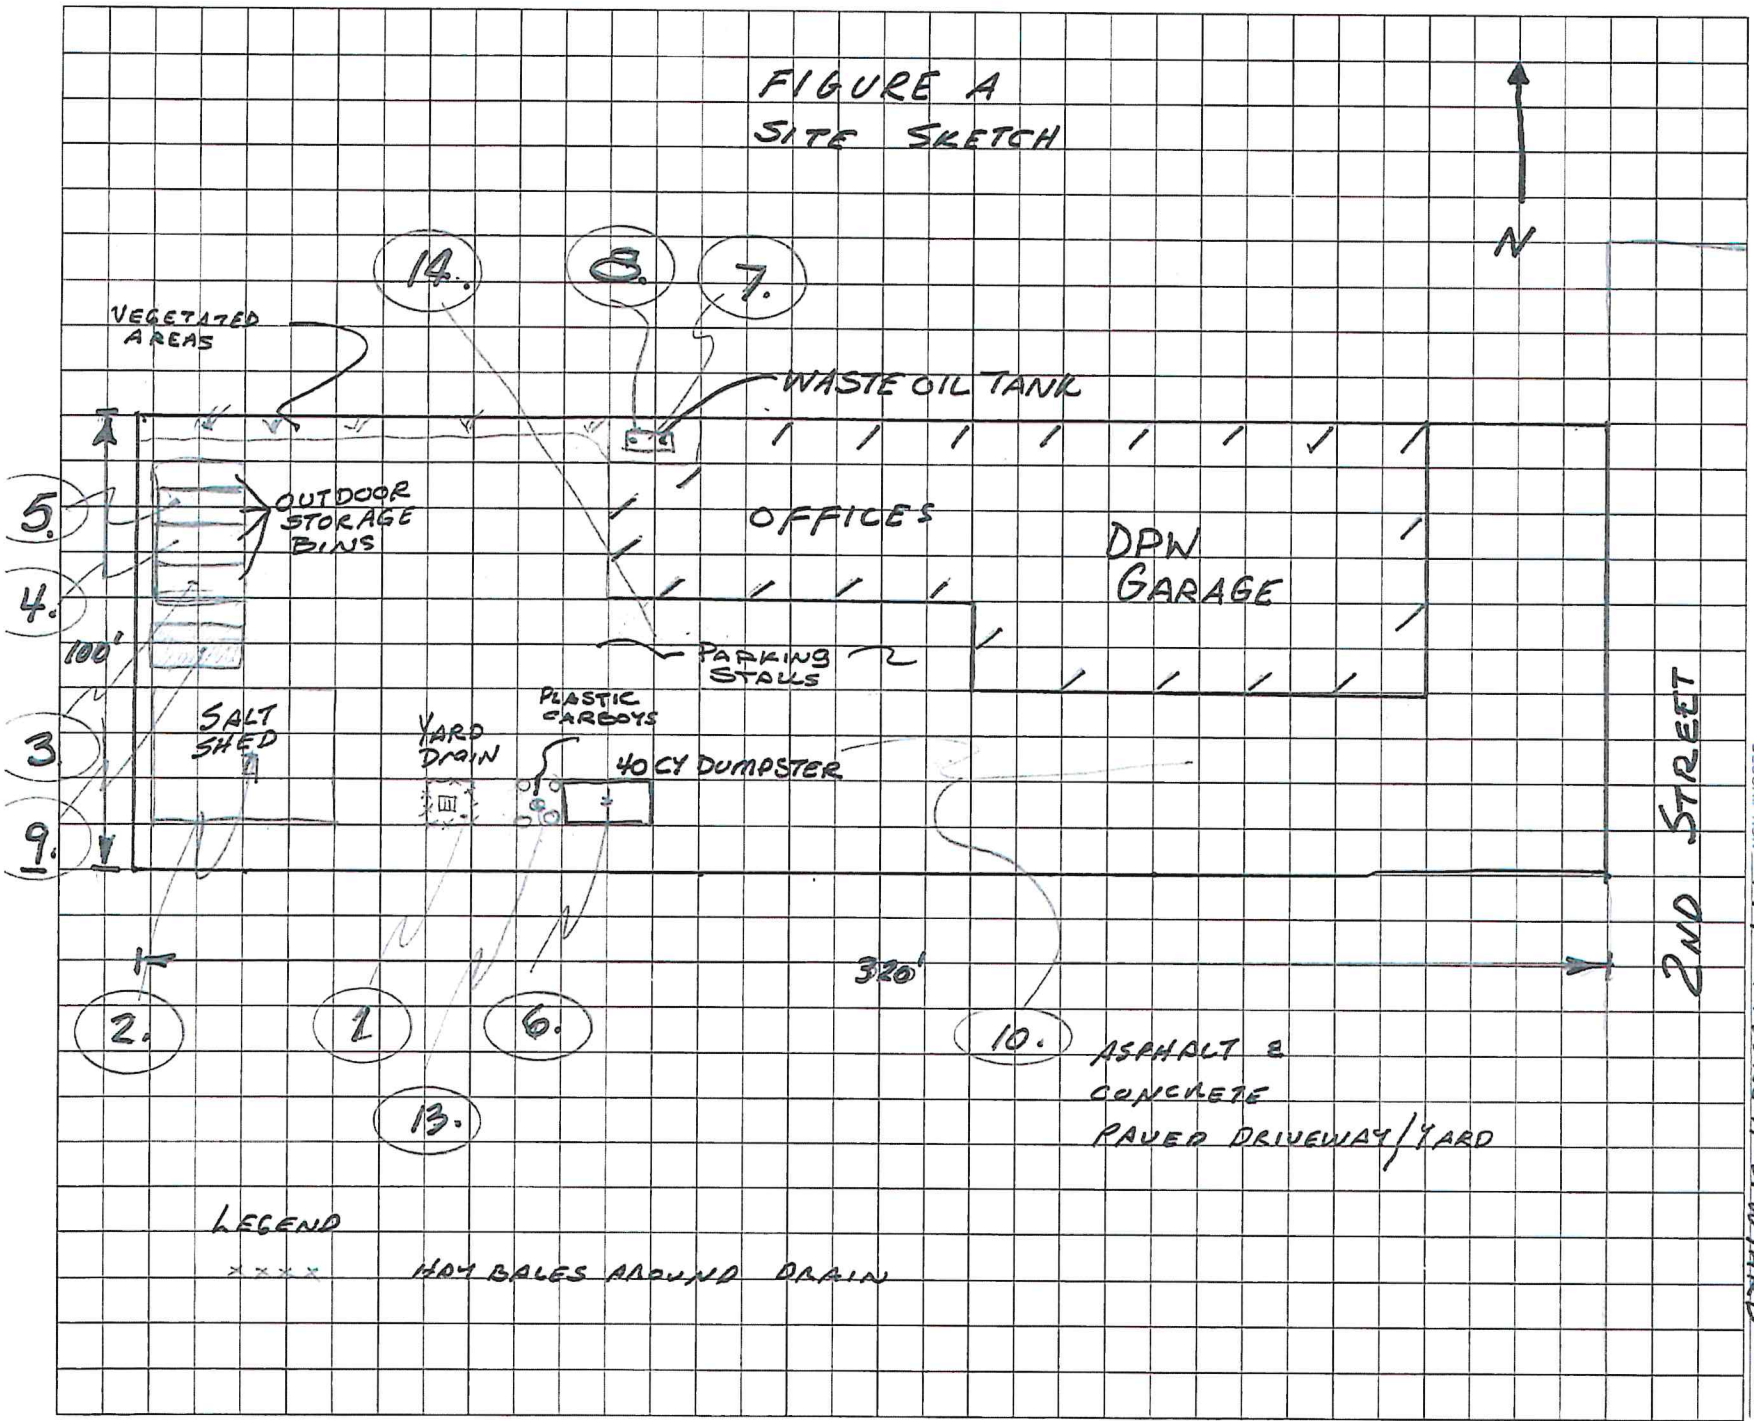 FIGURE A
SITE SKETCH
N
14.
8.
7.
VEGETATED
AREAS
WASTE OIL TANK
5.
OUTDOOR
STORAGE
BINS
OFFICES
DPW
GARAGE
4.
100'
PARKING
STALLS
PLASTIC
CARBOYS
SALT
SHED
YARD
DRAIN
3
40 CY DUMPSTER
9.
2ND STREET
320'
2.
1
6.
10.
ASPHALT &
CONCRETE
PAVED DRIVEWAY/YARD
13.
LEGEND
xxxx HAY BALES AROUND DRAIN